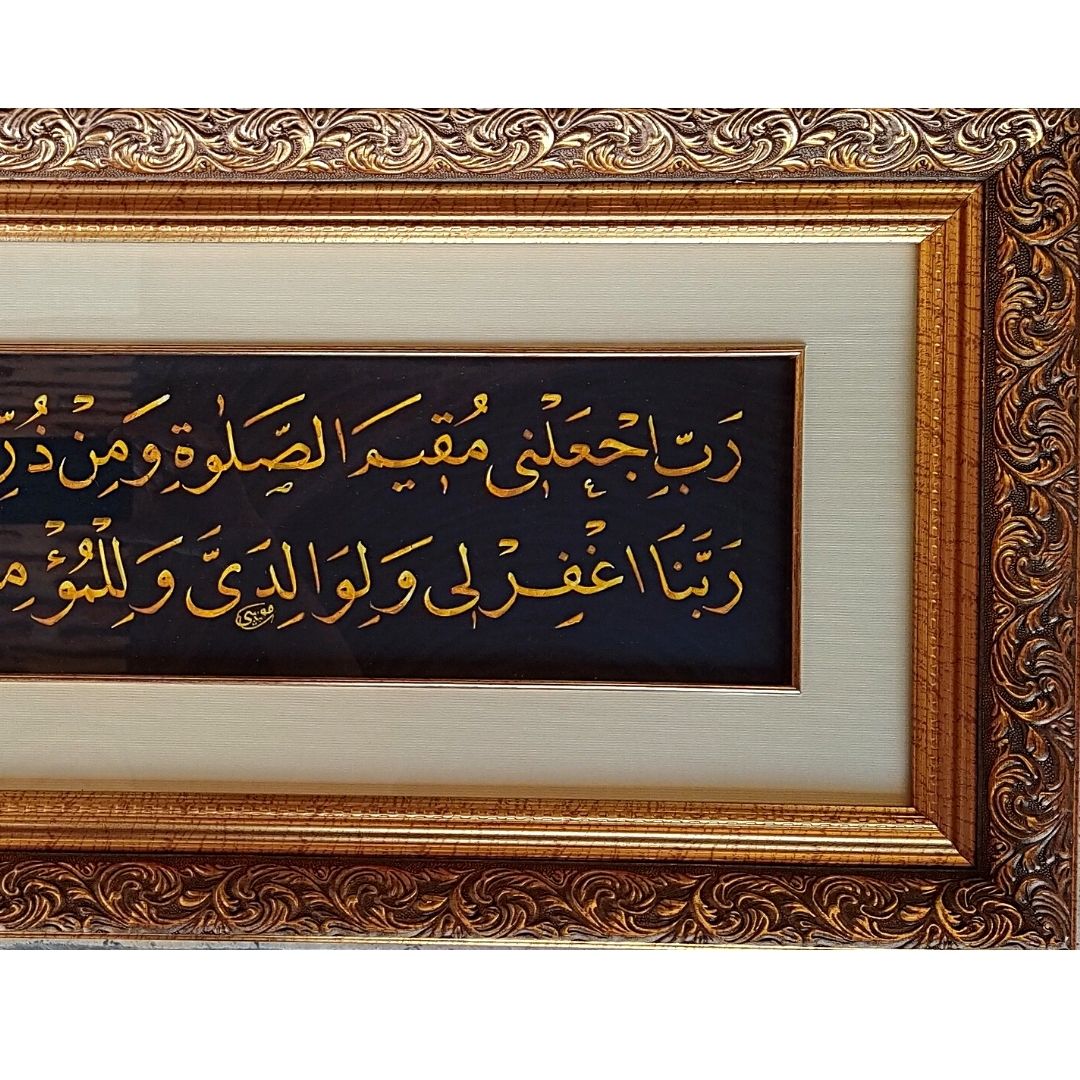 رَبِّ اجْعَلْنٖي مُقٖيمَ الصَّلٰوةِ وَمِنْ ذُرِّ
رَبَّنَا اغْفِرْ لٖي وَلِوَالِدَيَّ وَلِلْمُؤْمِ